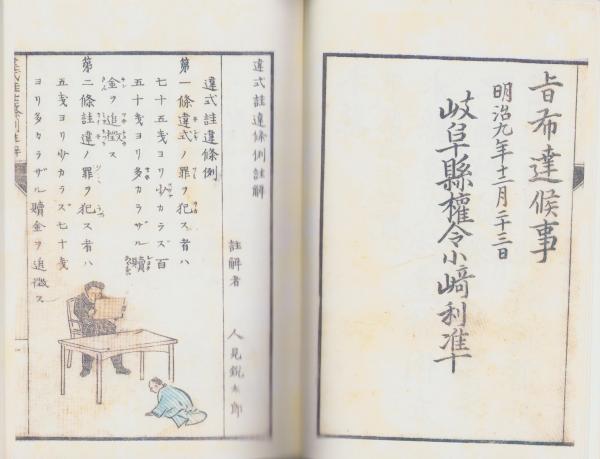 旨布達候事
明治九年十二月二十三日
岐阜縣權令小﨑利準
違式詿違條例註解
註解者 人見鋭太郎
違式詿違條例
第一條違式ノ罪ヲ犯ス者ハ
七十五戔ヨリ少カラズ百
五十戔ヨリ多カラザル贖
金ヲ追徴ス
第二條詿違ノ罪ヲ犯ス者ハ
五戔ヨリ少カラズ七十戔
ヨリ多カラザル贖金ヲ追徴ス